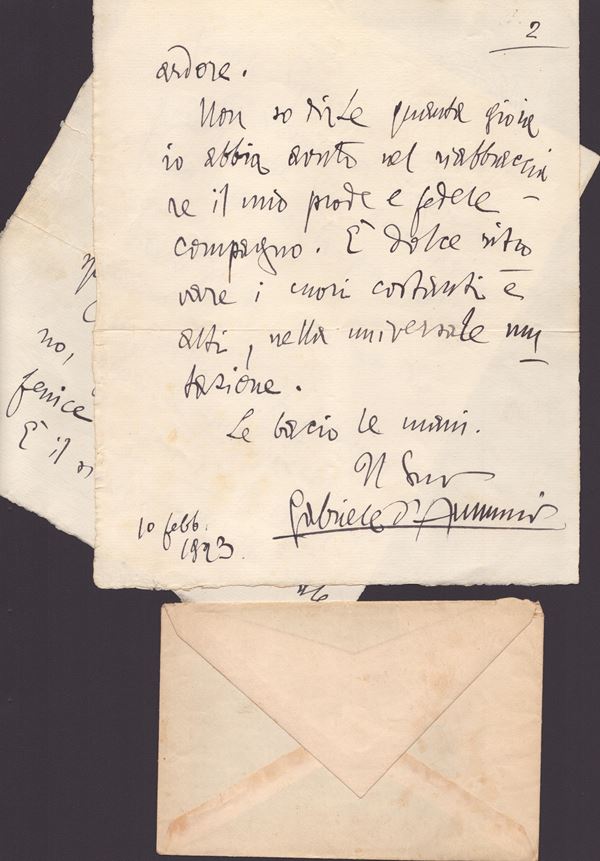 2
ardore.
Non so dirLe quanta gioia
io abbia avuto nel riabbraccia
re il mio prode e fedele
compagno. È dolce ritro
vare i cuori costanti e
alti, nella universale mu
tazione.
Le bacio le mani.
Il Suo
Gabriele d'Annunzio
10 febb.
1923.
no,
fenice
È il